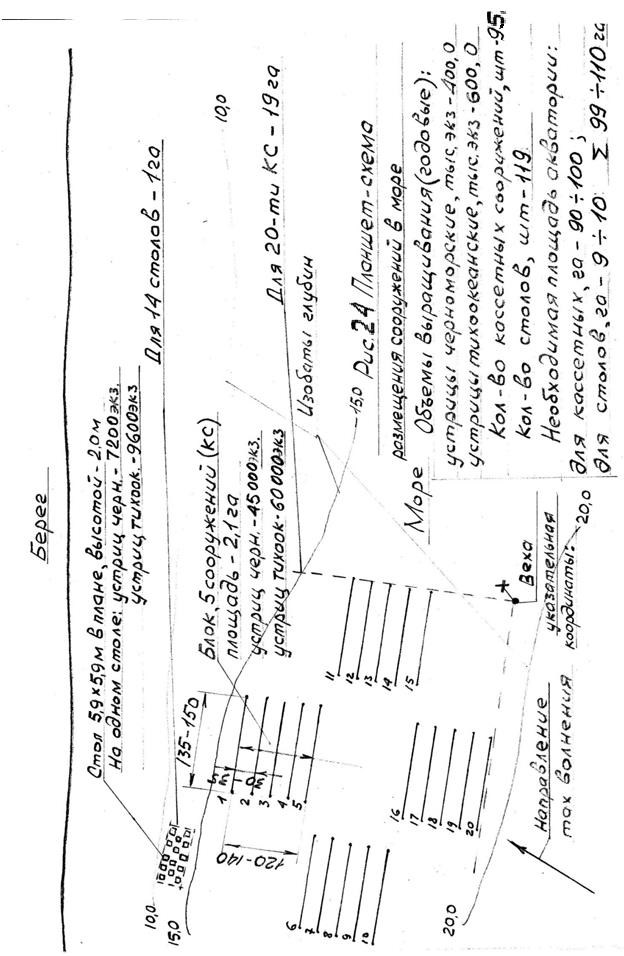 Берег
Стол 5,9×5,9м в плане, высотой - 2,0м
На одном столе: устриц черн. - 7200экз.
устриц тихоок - 9600экз
Для 14 столов - 1га
10,0
15,0
135-150
120-140
Блок, 5 сооружений (КС)
площадь - 2,1 га
устриц черн. - 45000экз.
устриц тихоок - 60000экз
Для 20-ти КС - 19 га
10,0
1
2
3
4
5
6
7
8
9
10
11
12
13
14
15
16
17
18
19
20
Изобаты глубин
15,0
Рис. 24 Планшет-схема
размещения сооружений в море
Море
Объемы выращивания (годовые):
устрицы черноморские, тыс. экз - 400,0
устрицы тихоокеанские, тыс. экз - 600,0
Кол-во кассетных сооружений, шт - 95.
Кол-во столов, шт - 119.
Необходимая площадь акватории:
для кассетных, га - 90÷100;
для столов, га - 9÷10. Σ 99÷110 га
Веха
указательная
координаты:
20,0
20,0
Направление
max волнения